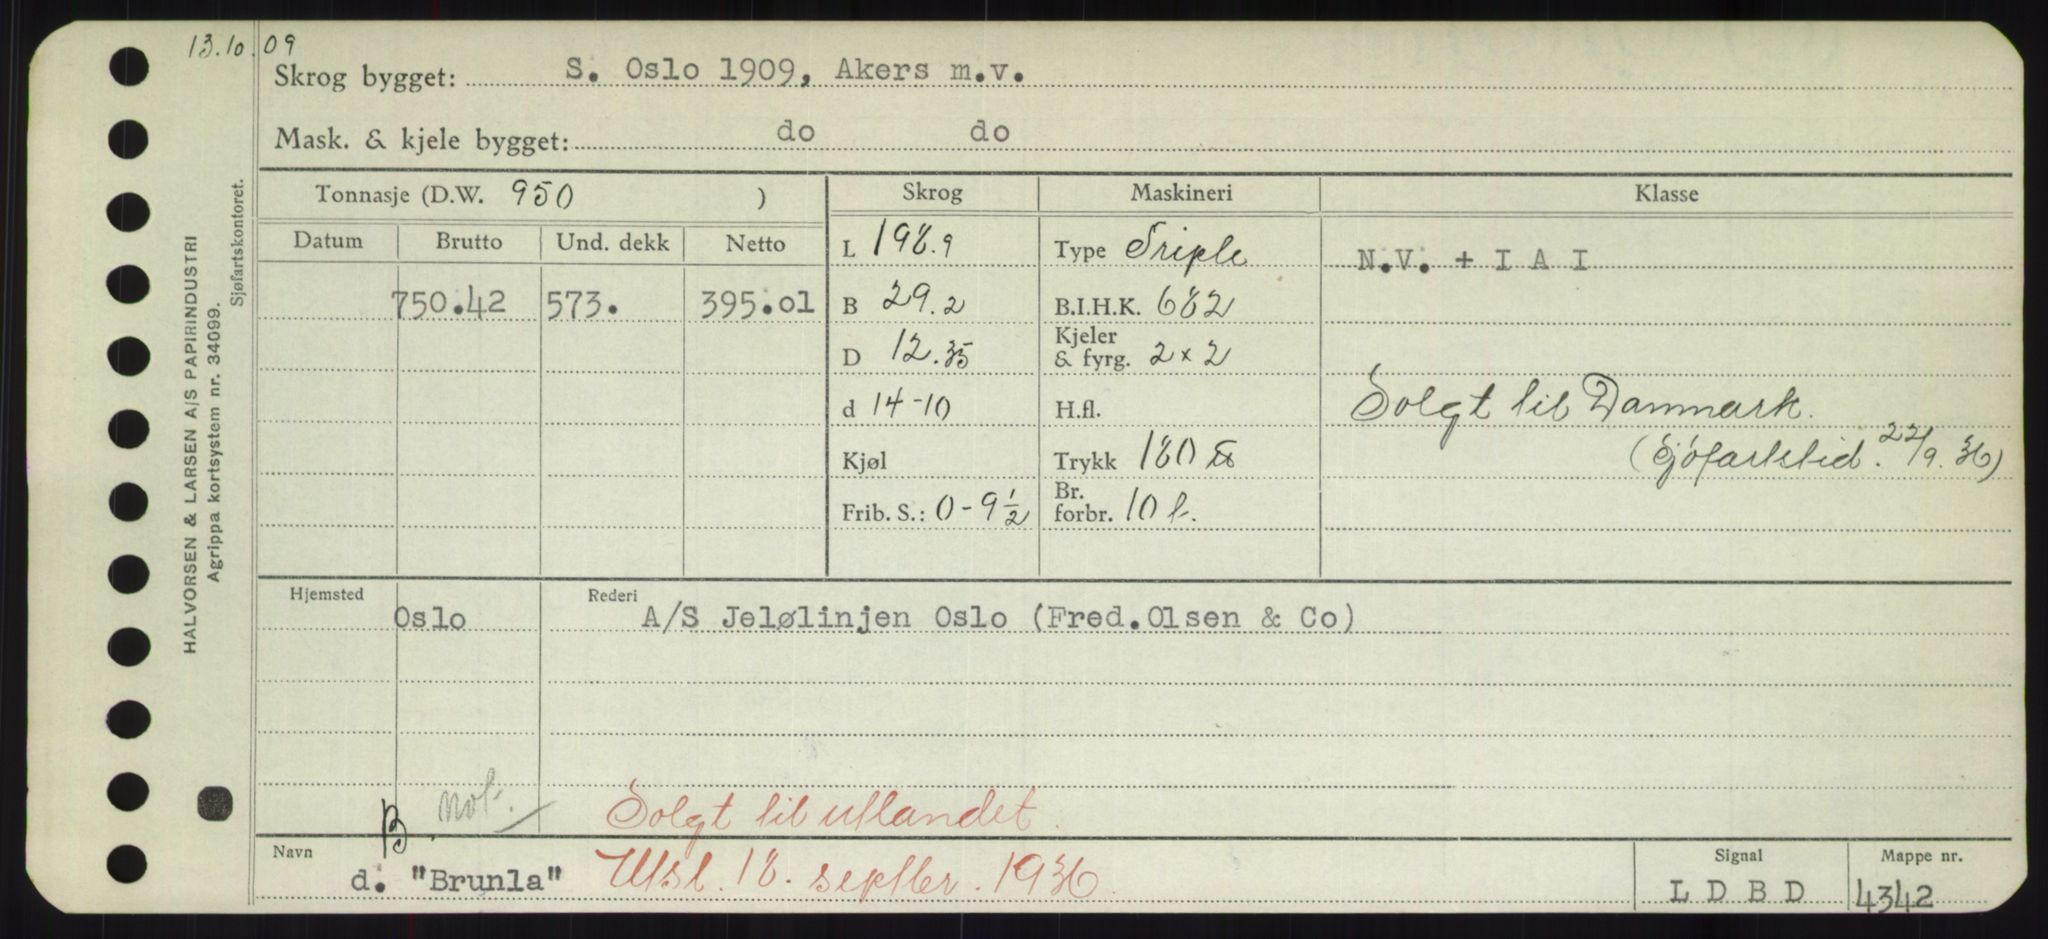 13.10.09
Skrog bygget: S. Oslo 1909, Akers m.v.
Mask. & kjele bygget: do do
Tonnasje (D.W. 950 ) Skrog Maskineri Klasse
Datum Brutto Und. dekk Netto L 198.9 Type Triple N.V. + I A I
750.42 573. 395.01 B 29.2 B.I.H.K. 682
D 12.35 Kjeler & fyrg. 2 x 2
d 14-10 H.fl. Solgt til Danmark.
Kjøl Trykk 180 (Sjøfartstid. 22/9.36)
Frib. S.: 0-9½ Br. forbr. 10 t.
Hjemsted Oslo Rederi A/S Jelølinjen Oslo (Fred.Olsen & Co)
B not. Solgt til utlandet.
Navn d. "Brunla" Utsl. 18. septber. 1936. Signal L D B D Mappe nr. 4342
HALVORSEN & LARSEN A/S PAPIRINDUSTRI
Agrippa kortsystem nr. 34099.
Sjøfartskontoret.